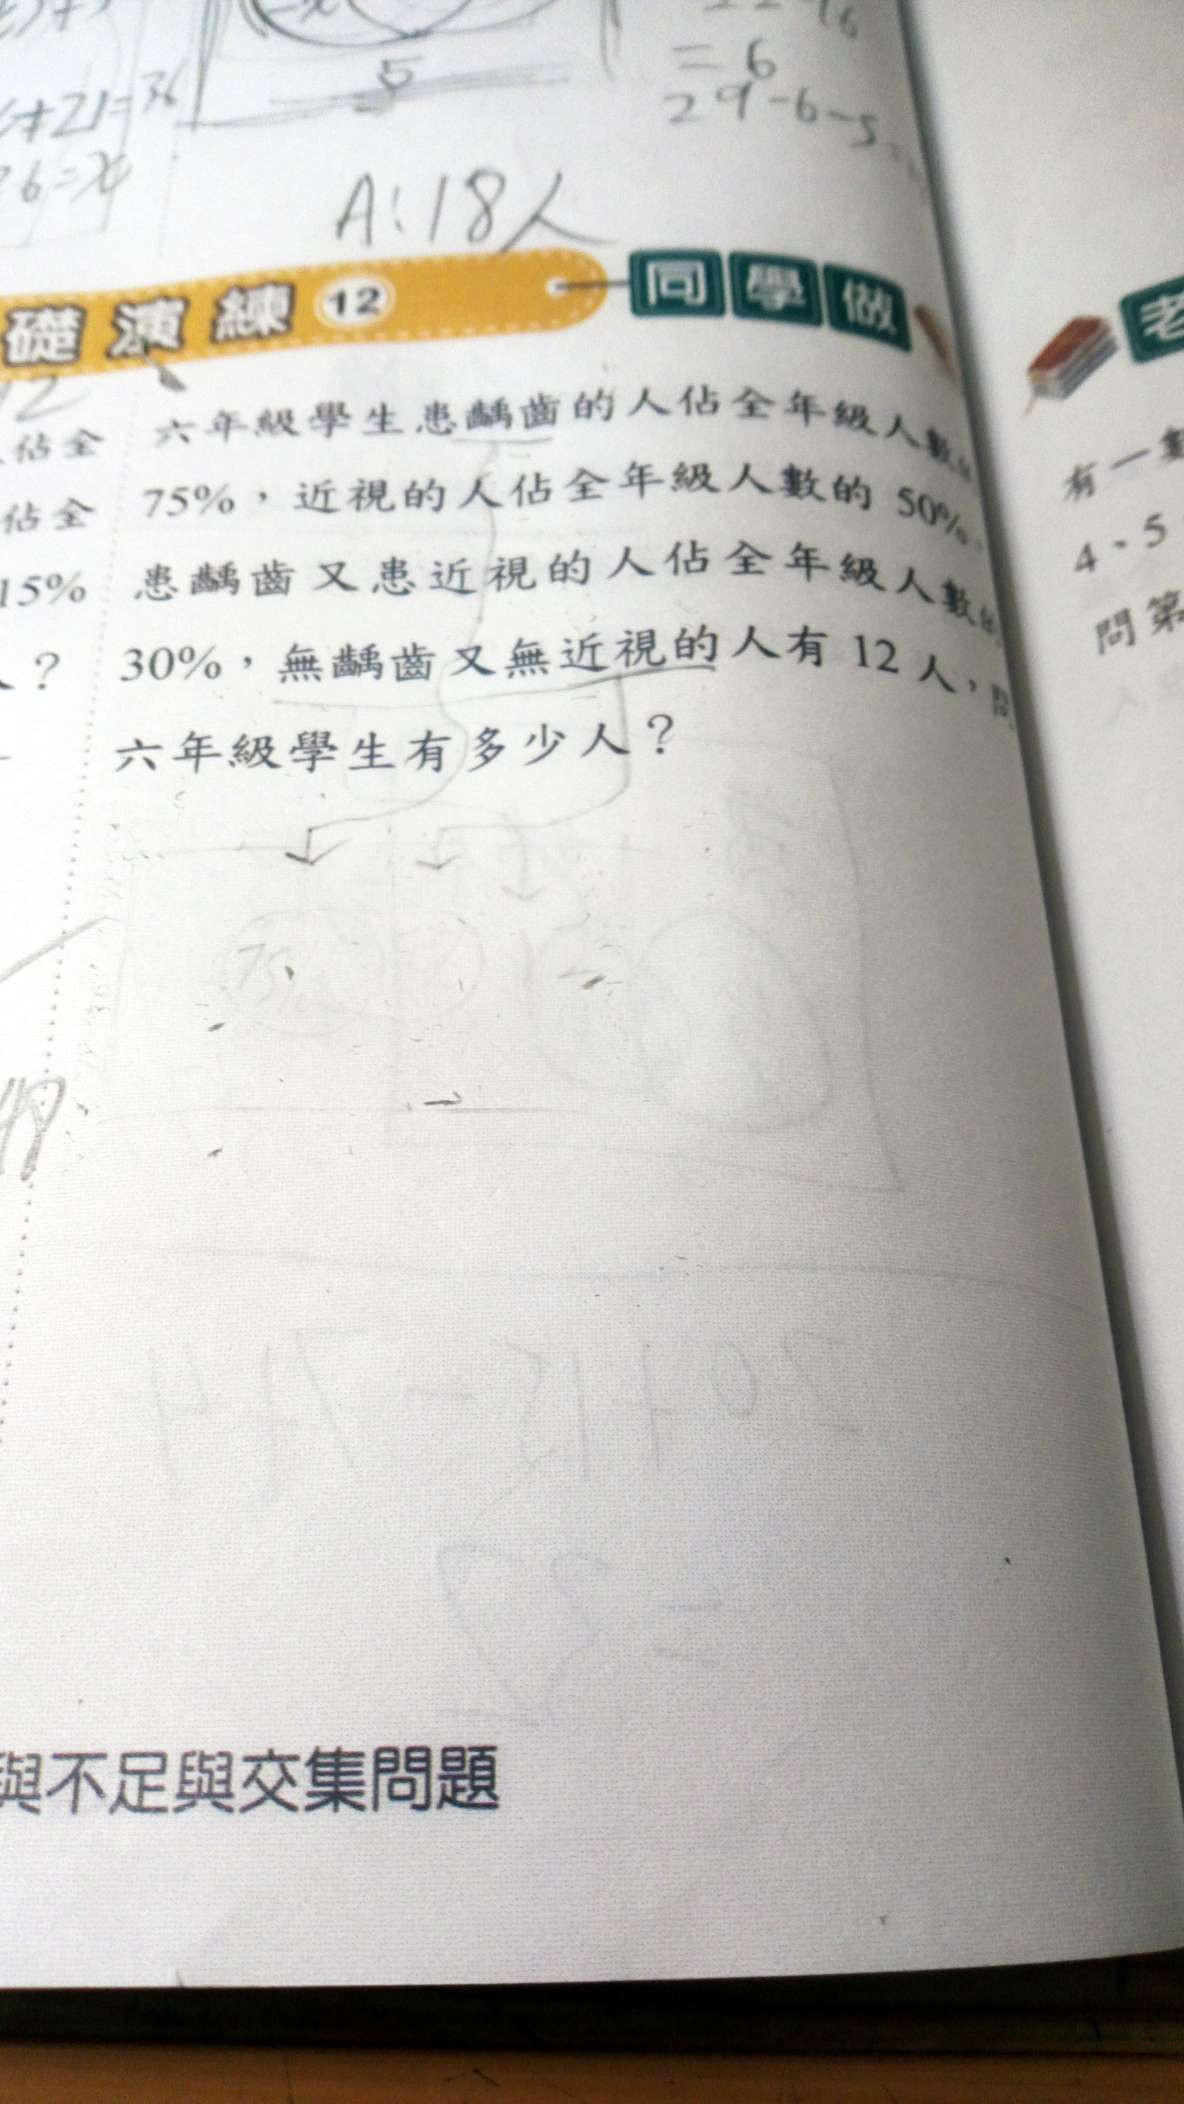 =6
29-6-5
5
+21=36
A:18人
礎演練 12 同學做
佔全
佔全
15%
？
六年級學生患齲齒的人佔全年級人數
75%，近視的人佔全年級人數的 50%，
患齲齒又患近視的人佔全年級人數的
30%，無齲齒又無近視的人有 12 人，問
六年級學生有多少人？
有一數
4、5
問第
與不足與交集問題